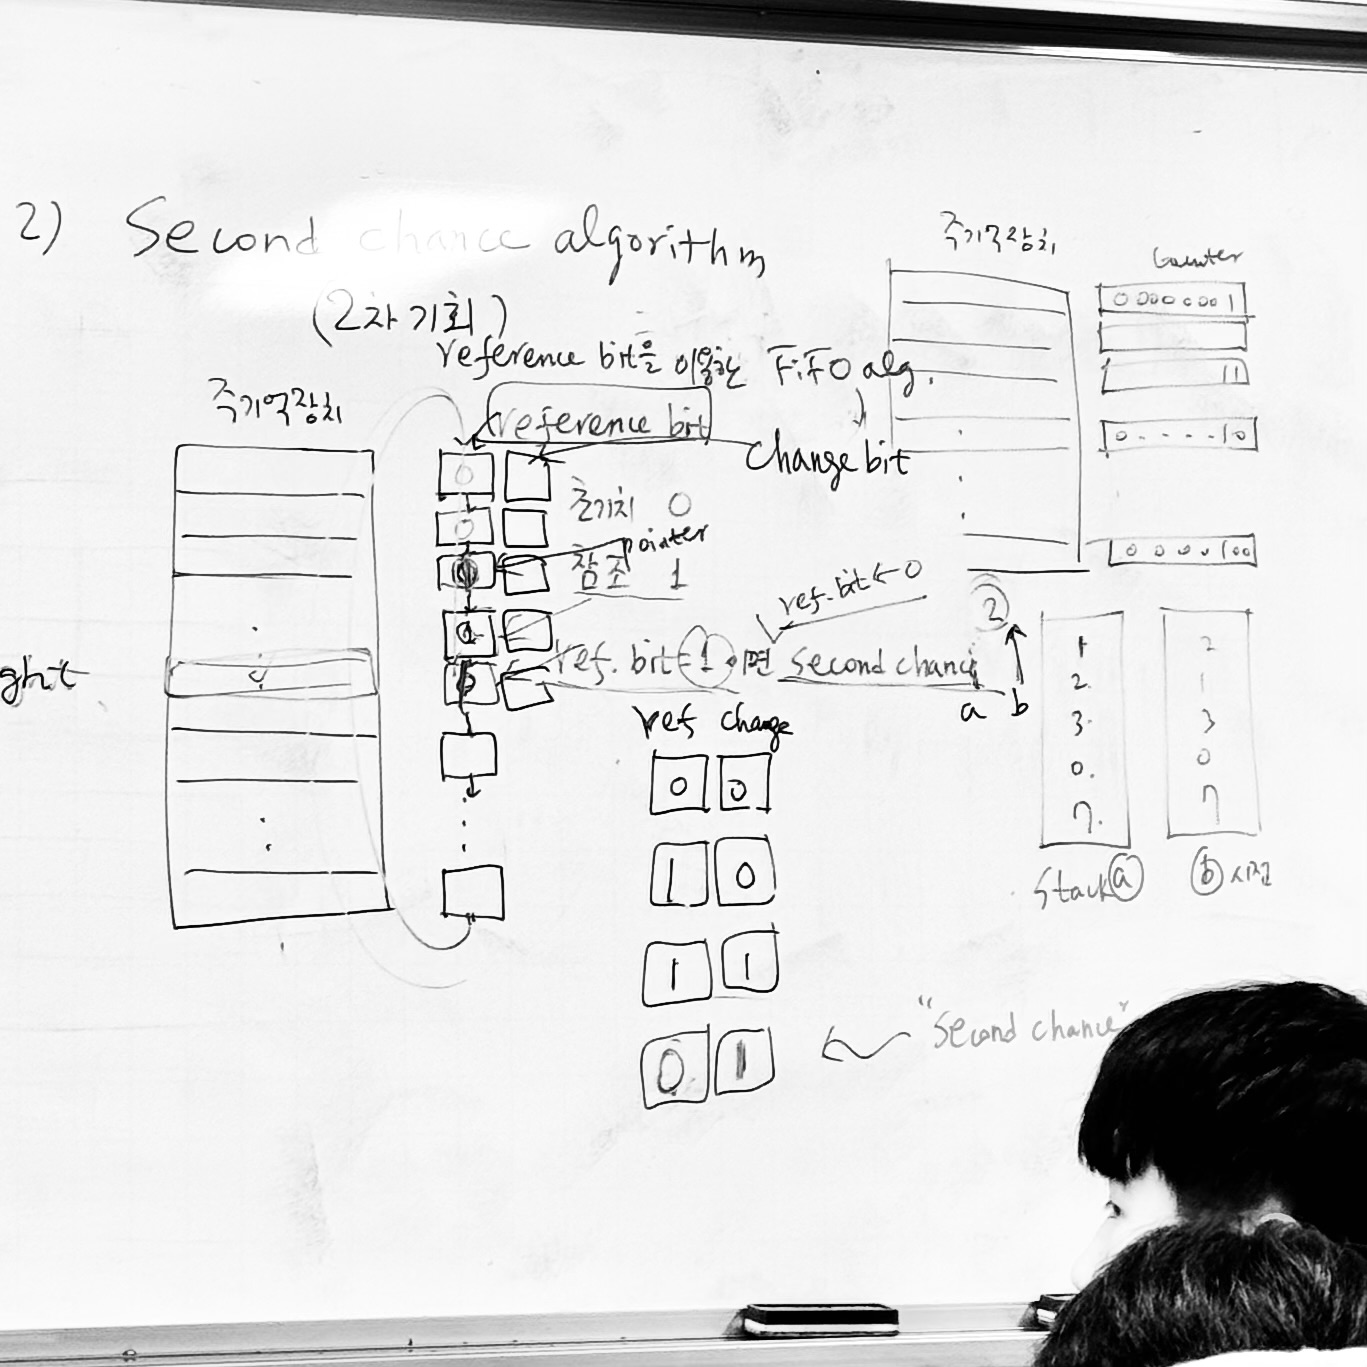 2) Second chance algorithm
(2차기회)
reference bit을 이용한 FiFO alg.
주기억장치
reference bit
change bit
0
0
초기치 0
pointer
참조 1
1
ref. bit = 1 이면 second chance
ref. bit ← 0
ght
ref change
0 0
1 0
1 1
0 1
"Second chance"
주기억장치
Counter
0 000 0001
11
0 . . . . 10
0 0 0 0 100
2
a b
1
2.
3.
0.
7.
Stack ⓐ
2
1
3
0
7
ⓑ 시점